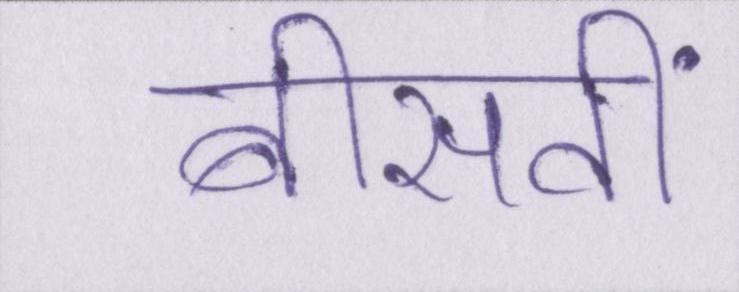 बीसवीं